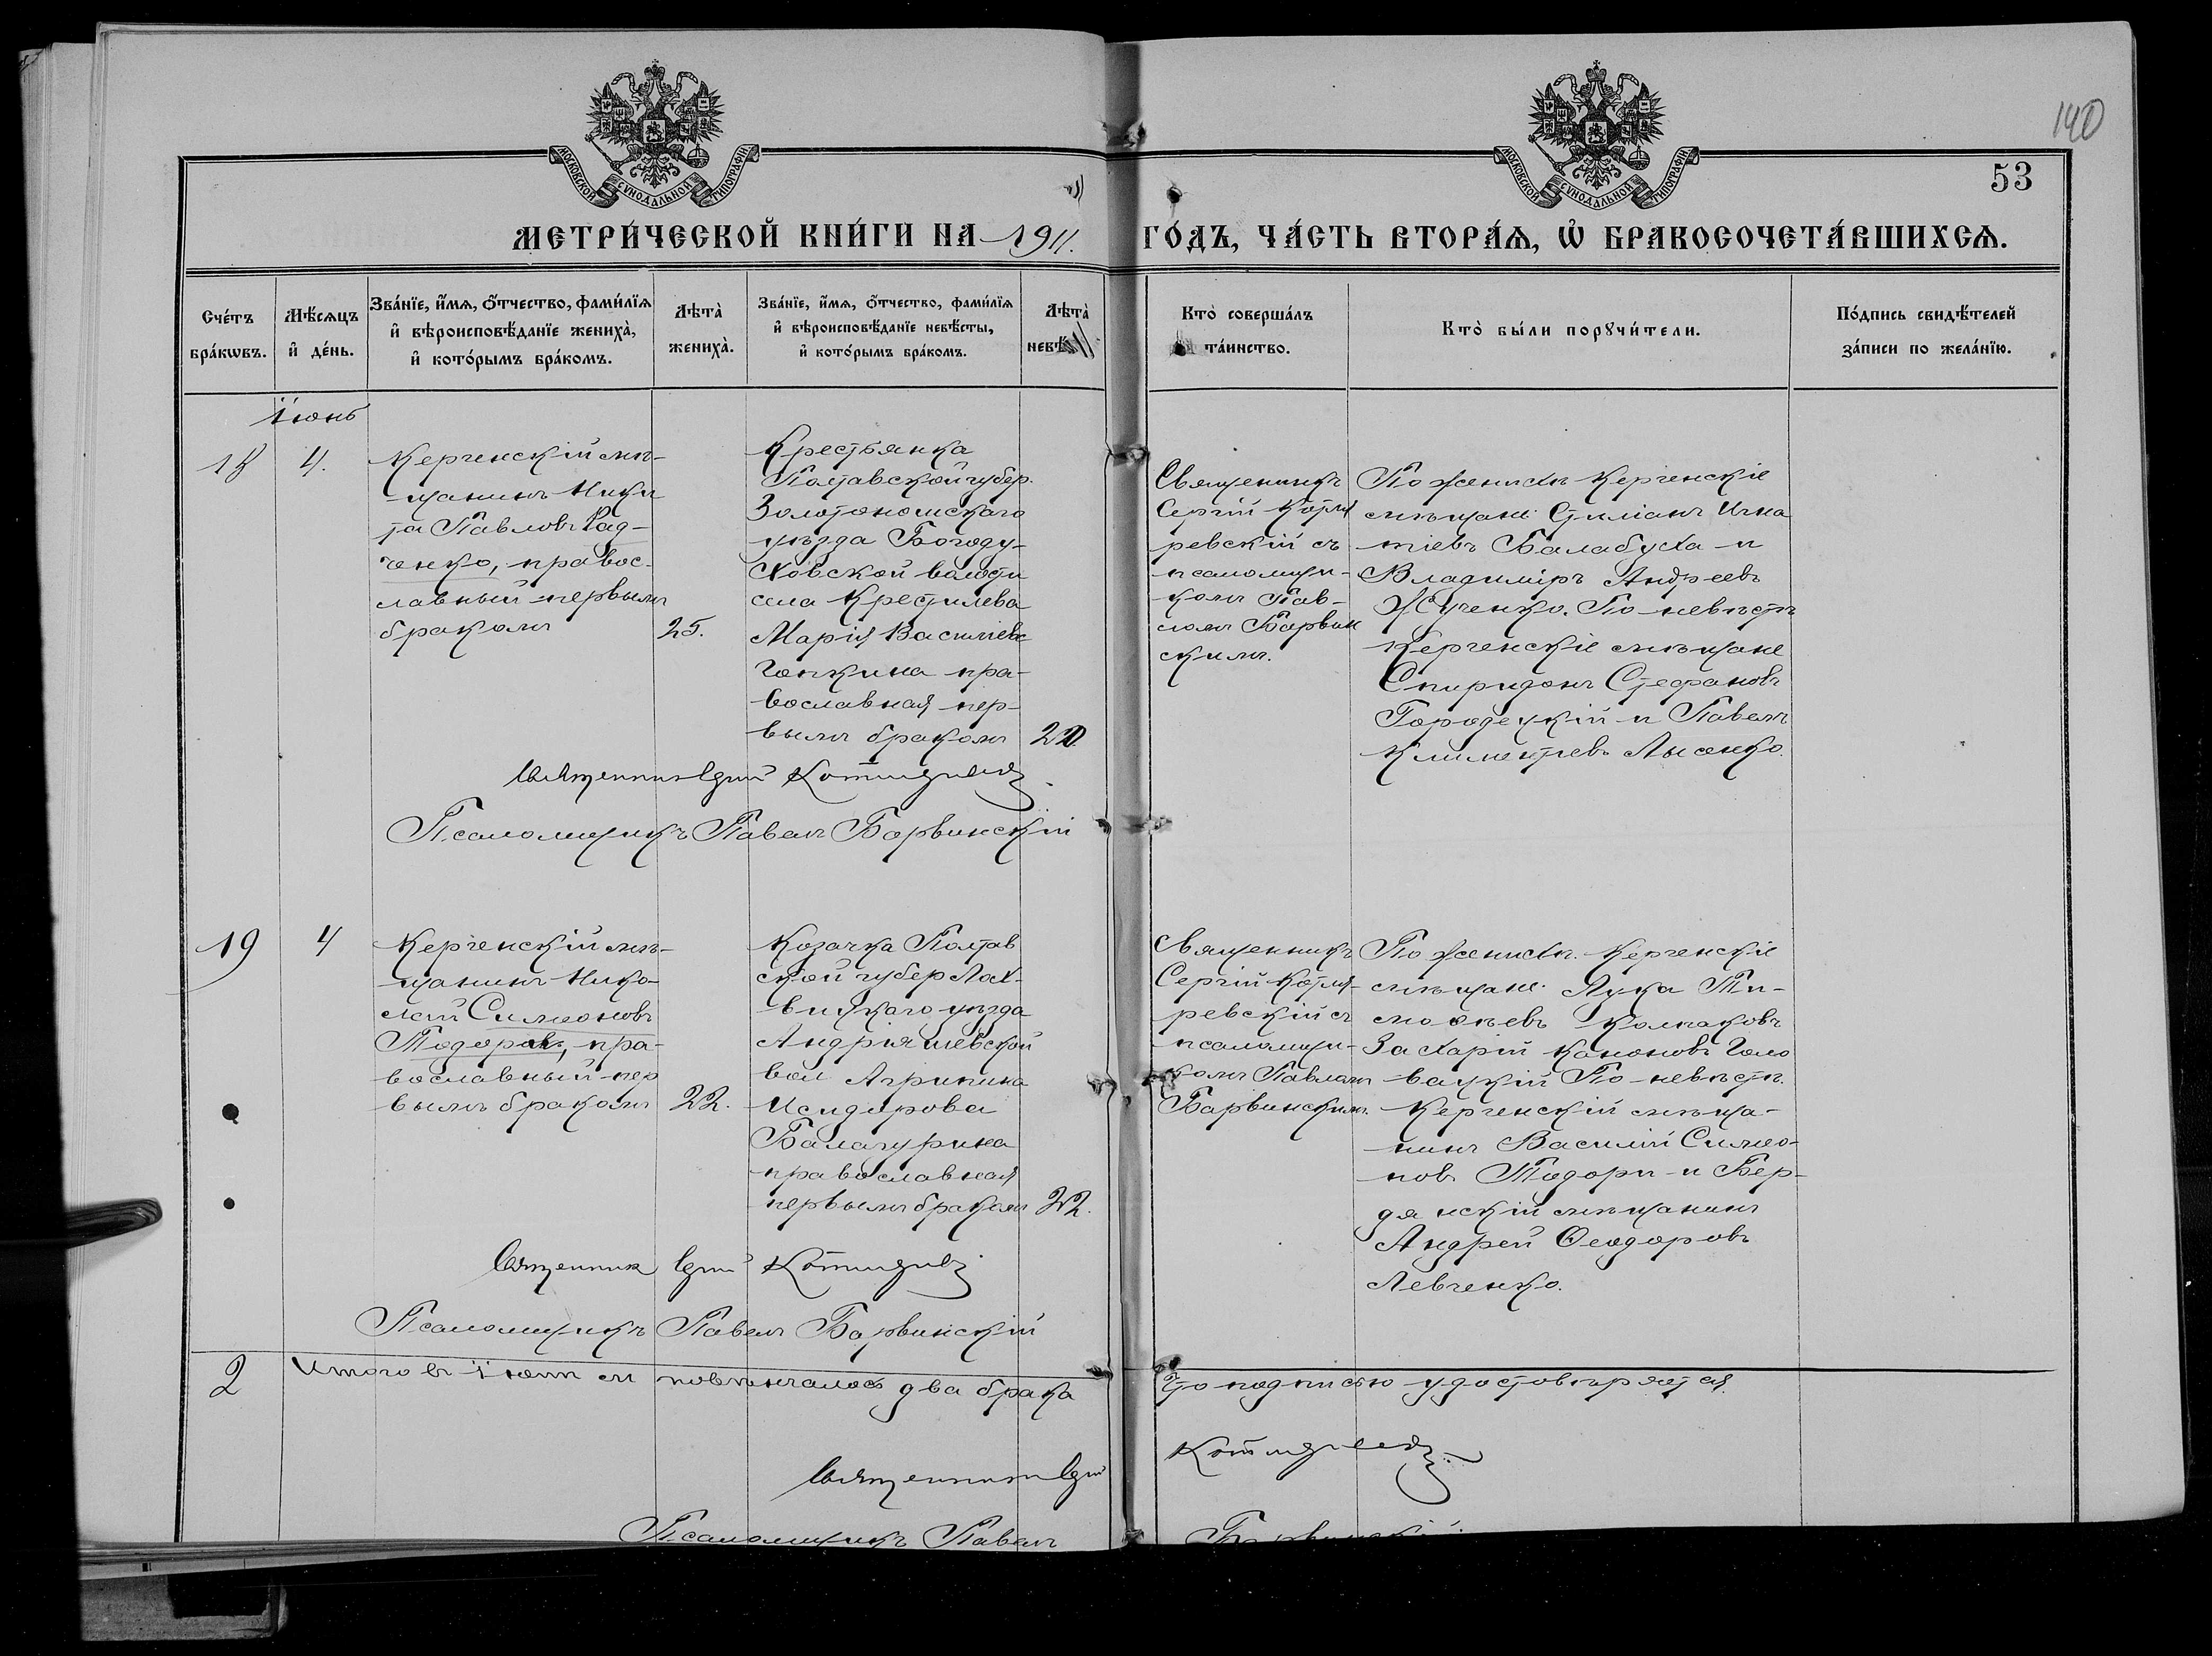 140
53
МОСКОВСКОЙ СѴНОДАЛЬНОЙ ТИПОГРАФІИ
МОСКОВСКОЙ СѴНОДАЛЬНОЙ ТИПОГРАФІИ
МЕТРИ́ЧЕСКОЙ КНИ́ГИ НА 1911. ГО́ДЪ, ЧА́СТЬ ВТОРА́Ѧ, Ѡ҆ БРАКОСОЧЕТА́ВШИХСѦ.
Сче́тъ
бра́кѡвъ.
Мѣ́сѧцъ
и҆ де́нь.
Зва́нїе, и҆́мѧ, ѻ҆́тчество, фами́лїѧ
и҆ вѣроисповѣ́данїе жениха̀,
и҆ кото́рымъ бра́комъ.
Лѣта̀
жениха̀.
Зва́нїе, и҆́мѧ, ѻ҆́тчество, фами́лїѧ
и҆ вѣроисповѣ́данїе невѣ́сты,
и҆ кото́рымъ бра́комъ.
Лѣта̀
невѣ́
Кто̀ соверша́лъ
та́инство.
Кто̀ бы́ли порꙋчи́тели.
По́дпись свидѣ́телей
за́писи по жела́нїю.
Іюнь
18
4.
Керченскій мѣ-
щанинъ Ники
та Павловъ Рад-
ченко, правос-
лавный первымъ
бракомъ
25.
Крестьянка
Полтавской губер.
Золотоношскаго
уѣзда Богоду-
ховской волости
села Крестилева
Марія Васильева
Гонкина пра-
вославная пер-
вымъ бракомъ
20.
Священникъ
Сергій Котля
ревскій съ
псаломщи-
комъ Пав-
ломъ Барвин
скимъ.
По женихѣ Керченскіе
мѣщане: Стиліанъ Игна
тіевъ Балабуха и
Владиміръ Андреевъ
Жученко. По невѣстѣ
Керченскіе мѣщане
Спиридонъ Стефановъ
Городецкій и Павелъ
Климентьевъ Лысенко.
Священникъ Сергій Котляревскій
Псаломщикъ Павелъ Барвинскій
19
4
Керченскій мѣ-
щанинъ Нико-
лай Симеоновъ
Тодоровъ, пра-
вославный пер
вымъ бракомъ
22.
Козачка Полтав
ской губер Лох-
вицкаго уѣзда
Андріяшевской
вол Агрипина
Исидорова
Балагурина
православная
первымъ бракомъ
22.
Священникъ
Сергій Котля-
ревскій съ
псаломщи-
комъ Павломъ
Барвинскимъ.
По женихѣ. Керченскіе
мѣщане: Лука Ти-
моѳѣевъ Колпаковъ
Захарій Кононовъ Голо
вацкій По невѣстѣ.
Керченскій мѣща-
нинъ Василій Симео-
новъ Тодори и Бер-
дянскій мѣщанинъ
Андрей Ѳеодоровъ
Левченко.
Священникъ Сергій Котляревскій
Псаломщикъ Павелъ Барвинскій
2
Итого въ іюнѣ м повѣнчалось два брака
Что подписью удостовѣряется.
Священникъ Сергій Котляревскій
Псаломщикъ Павелъ Барвинскій.